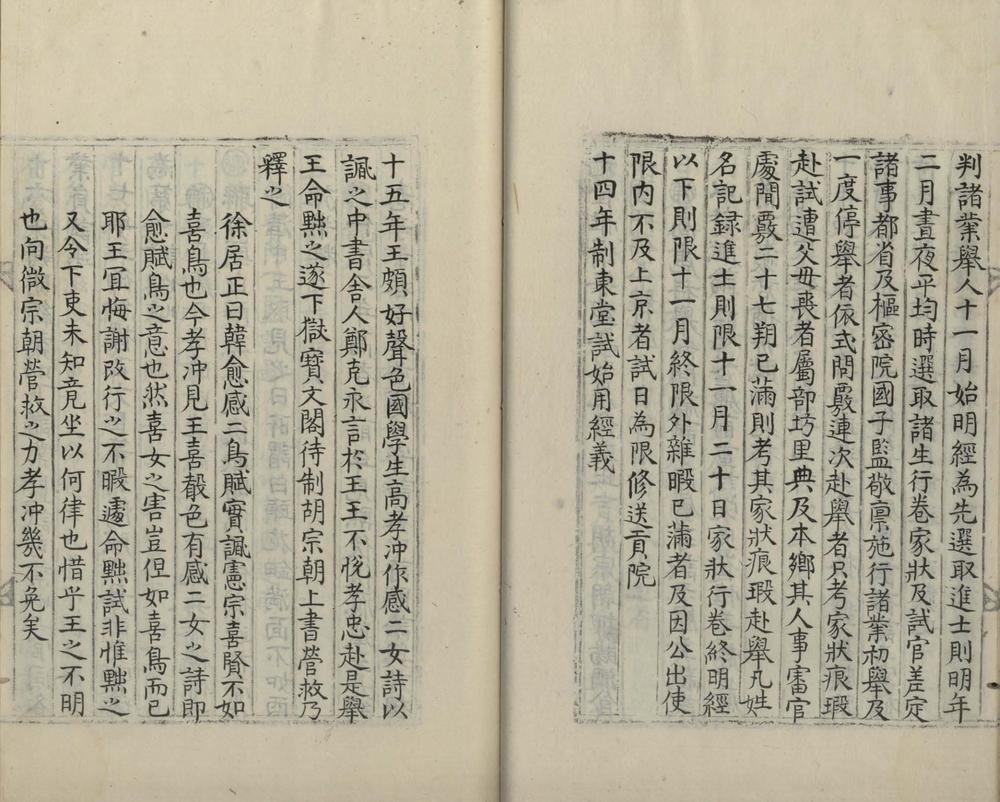 判諸業舉人十一月始明經為先選取進士則明年
二月晝夜平均時選取諸生行卷家狀及試官差定
諸事都省及樞密院國子監敬禀施行諸業初舉及
一度停舉者依式問覈連次赴舉者只考家狀痕瑕
赴試遭父毋喪者屬部坊里典及本鄉其人事審官
處間覈二十七朔已滿則考其家狀痕瑕赴舉凡姓
名記録進士則限十二月二十日家狀行卷終明經
以下則限十一月終限外雜暇已滿者及因公出使
限内不及上京者試日為限修送貢院
十四年制東堂試始用經義
十五年王頗好聲色國學生高孝冲作感二女詩以
諷之中書舍人鄭克永言於王王不悅孝忠赴是舉
王命黜之遂下獄寳文閣待制胡宗朝上書營救乃
釋之
徐居正曰韓愈感二鳥賦實諷憲宗喜賢不如
喜鳥也今孝冲見王喜聲色有感二女之詩即
愈賦鳥之意也然喜女之害豈但如喜鳥而已
耶王冝悔謝改行之不暇遽命黜試非惟黜之
又令下吏未知竟坐以何律也惜乎王之不明
也向微宗朝營救之力孝冲幾不免矣